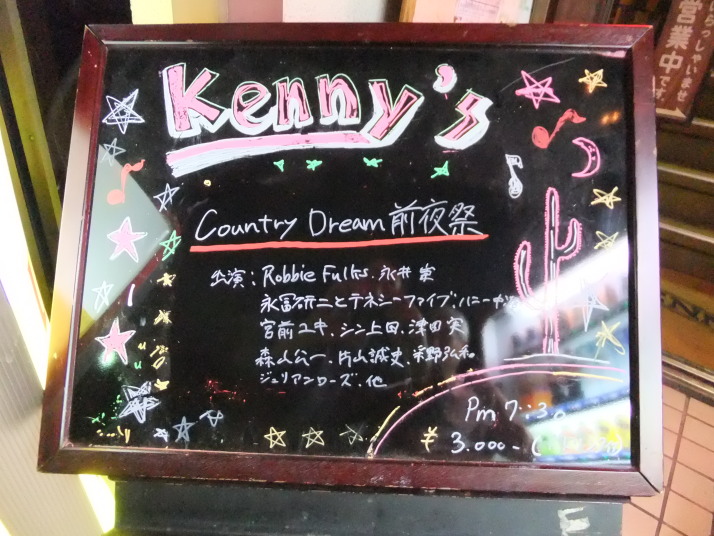 Kenny's
Country Dream 前夜祭
出演: Robbie Fulks. 永井 崇
永冨研二とテネシーファイブ. ハニー
宮前ユキ. シン上田. 津田 実
森山公一. 片山誠史. 弘和
ジュリアンローズ. 他
Pm 7:30
¥3.000-(
いらっしゃいませ
営業中です